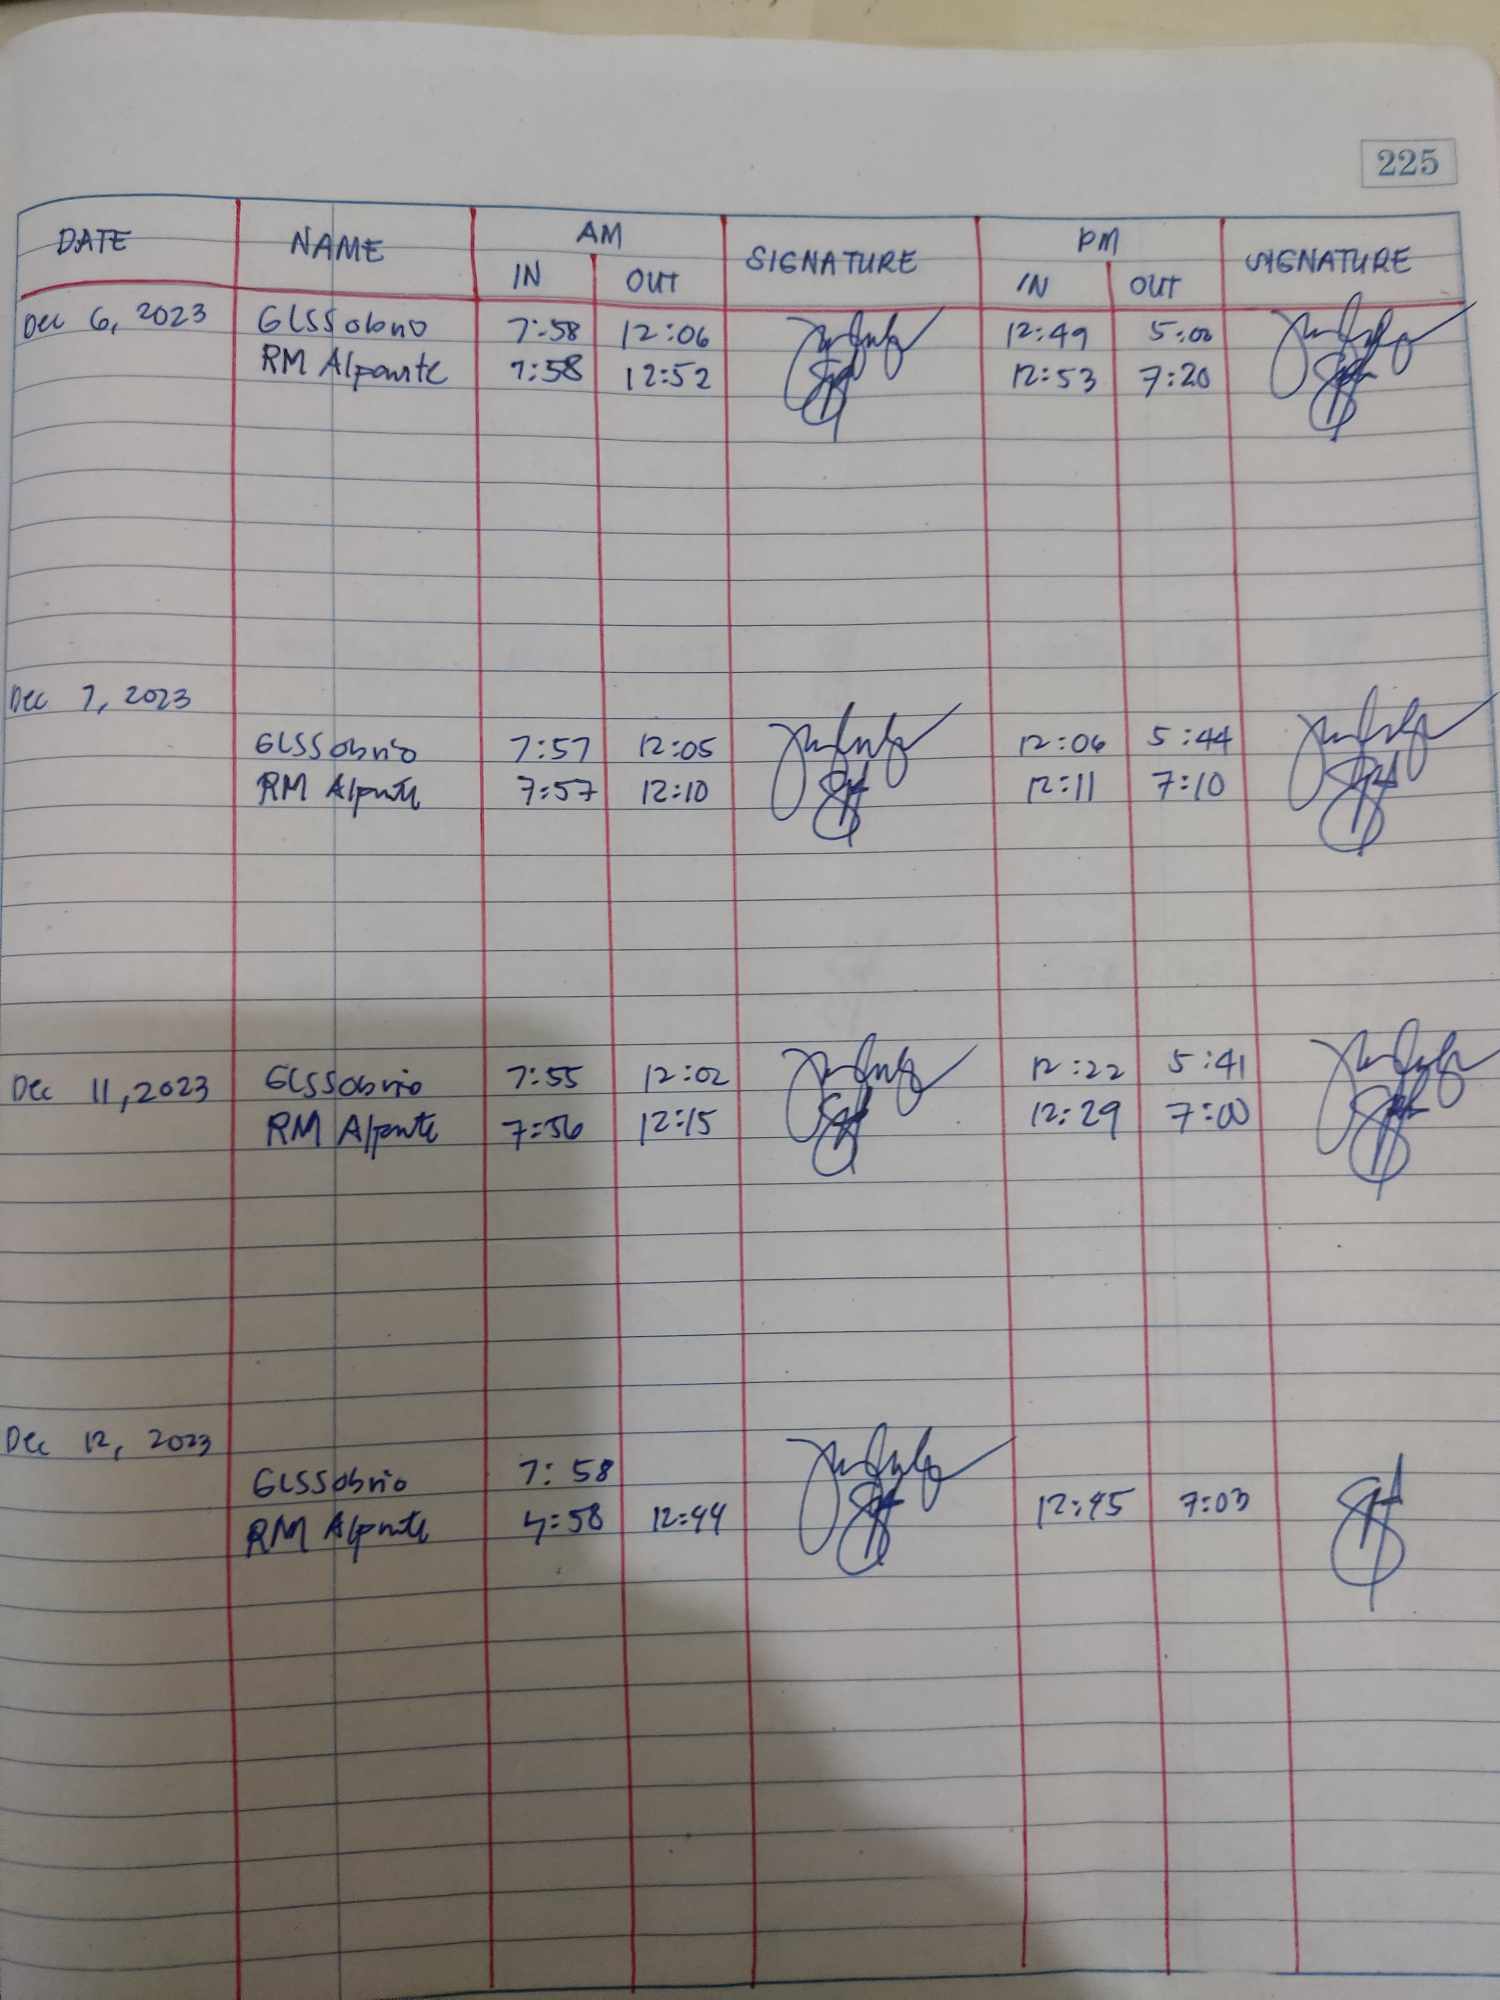 225
DATE NAME AM SIGNATURE PM SIGNATURE
IN OUT IN OUT
Dec 6, 2023 GLSSobrio 7:58 12:06 12:49 5:00
RM Alponte 7:58 12:52 12:53 7:20
Dec 7, 2023
GLSSobrio 7:57 12:05 12:06 5:44
RM Alponte 7:57 12:10 12:11 7:10
Dec 11, 2023 GLSSobrio 7:55 12:02 12:22 5:41
RM Alponte 7:56 12:15 12:29 7:00
Dec 12, 2023
GLSSobrio 7:58
RM Alponte 7:58 12:44 12:45 7:03